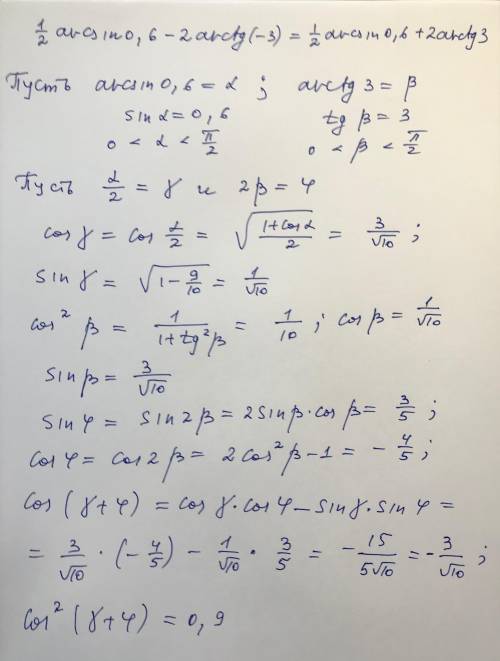 ½ arcsin 0,6 − 2 arctg(−3) = ½ arcsin 0,6 + 2 arctg 3
Пусть arcsin 0,6 = α ; arctg 3 = β
sin α = 0,6 tg β = 3
0 < α < π/2 0 < β < π/2
Пусть α/2 = γ и 2β = φ
cos γ = cos α/2 = √((1+cos α)/2) = 3/√10 ;
sin γ = √(1 − 9/10) = 1/√10
cos² β = 1/(1+tg²β) = 1/10 ; cos β = 1/√10
sin β = 3/√10
sin φ = sin 2β = 2 sin β · cos β = 3/5 ;
cos φ = cos 2β = 2 cos² β − 1 = − 4/5 ;
cos (γ + φ) = cos γ · cos φ − sin γ · sin φ =
= 3/√10 · (− 4/5) − 1/√10 · 3/5 = − 15/(5√10) = − 3/√10 ;
cos² (γ + φ) = 0,9